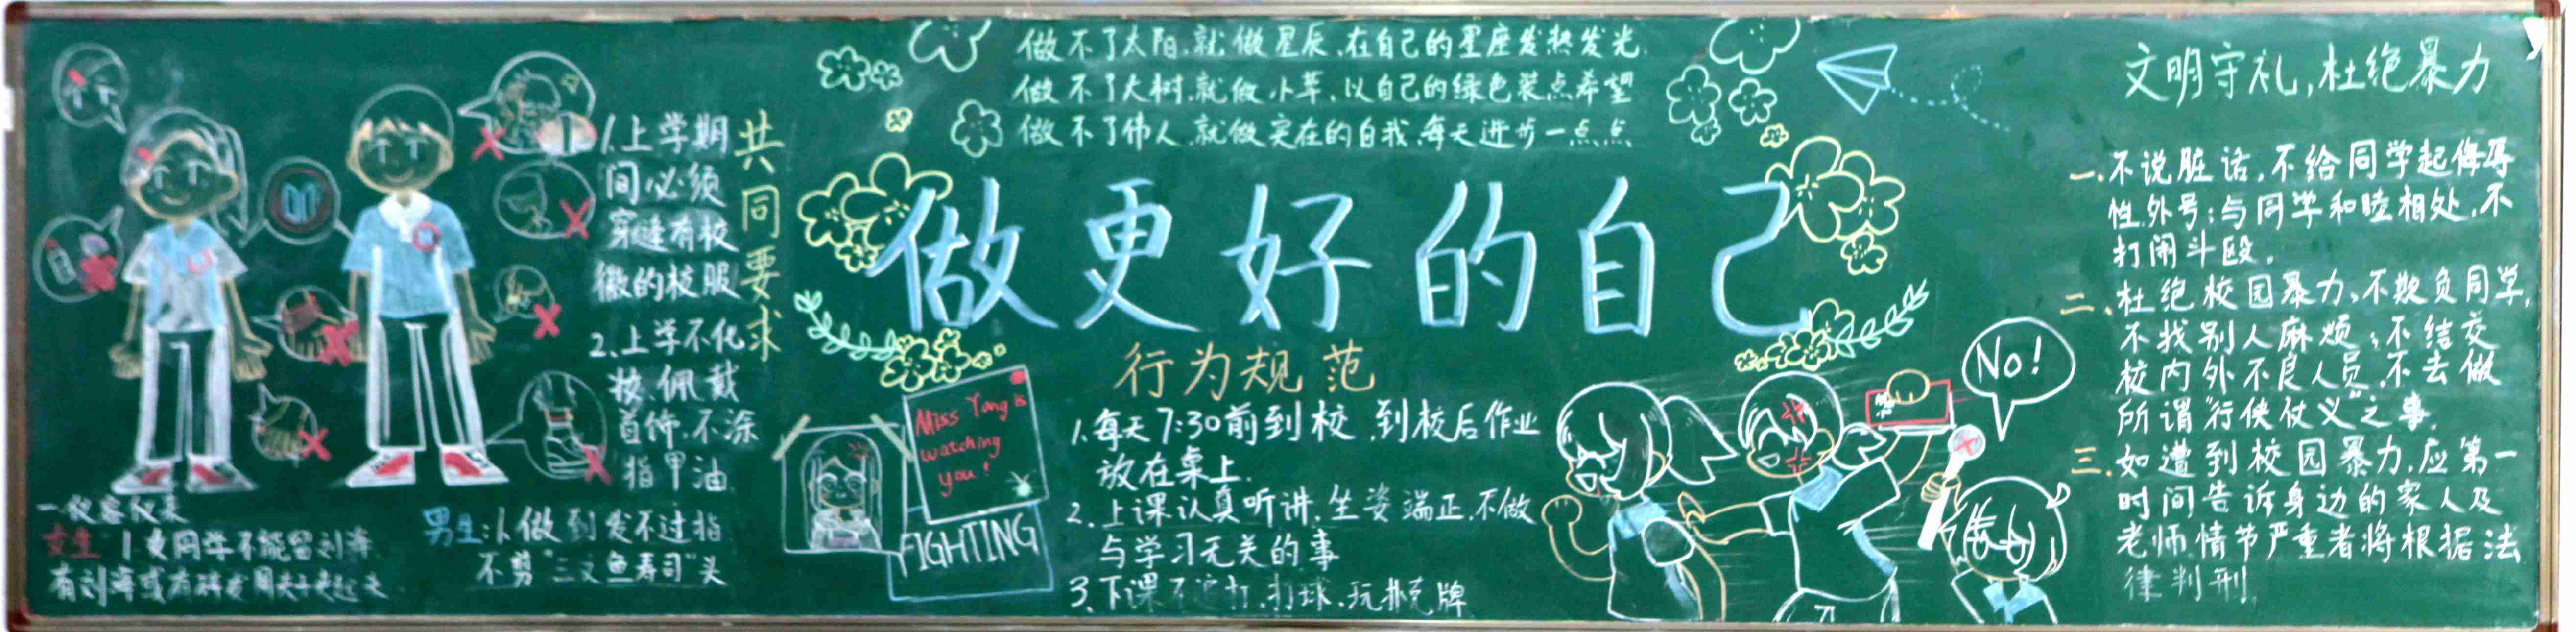 做不了太阳,就做星辰,在自己的星座发热发光.
做不了大树,就做小草,以自己的绿色装点希望
做不了伟人,就做实在的自我,每天进步一点点
做更好的自己
共同要求
1.上学期
间必须
穿缝有校
徽的校服
2.上学不化
妆.佩戴
首饰.不涂
指甲油.
一仪容仪表
女生: 1.女同学不能留刘海
有刘海或有碎发用夹子夹起来
男生:1.做到发不过指
不剪“三叉鱼寿司”头
Miss Yang is
watching
you!
FIGHTING
行为规范
1.每天7:30前到校.到校后作业
放在桌上.
2.上课认真听讲.坐姿端正.不做
与学习无关的事
3.下课不追打.打球.玩扑克牌
No!
文明守礼,杜绝暴力
一.不说脏话,不给同学起侮辱
性外号;与同学和睦相处,不
打闹斗殴.
二、杜绝校园暴力、不欺负同学,
不找别人麻烦;不结交
校内外不良人员.不去做
所谓“行侠仗义”之事.
三.如遭到校园暴力.应第一
时间告诉身边的家人及
老师.情节严重者将根据法
律判刑.